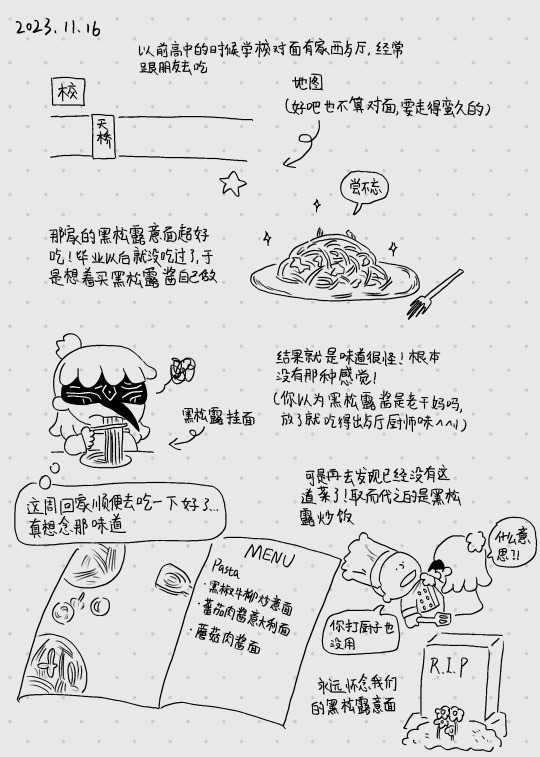 2023.11.16
以前高中的时候学校对面有家西餐厅,经常
跟朋友去吃
校
天桥
地图
(好吧也不算对面,要走得蛮久的)
尝不忘
那家的黑松露意面超好
吃!毕业以后就没吃过了,于
是想着买黑松露酱自己做
结果就是味道很怪!根本
没有那种感觉!
(你以为黑松露酱是老干妈吗,
放了就吃得出餐厅厨师味^^)
黑松露挂面
这周回家顺便去吃一下好了...
真想念那味道
可是再去发现已经没有这
道菜了!取而代之的是黑松
露炒饭
什么意
思?!
你打厨子也
没用
MENU
Pasta
·黑椒牛柳炒意面
·蕃茄肉酱意大利面
·蘑菇肉酱面
R.I.P
永远怀念我们
的黑松露意面